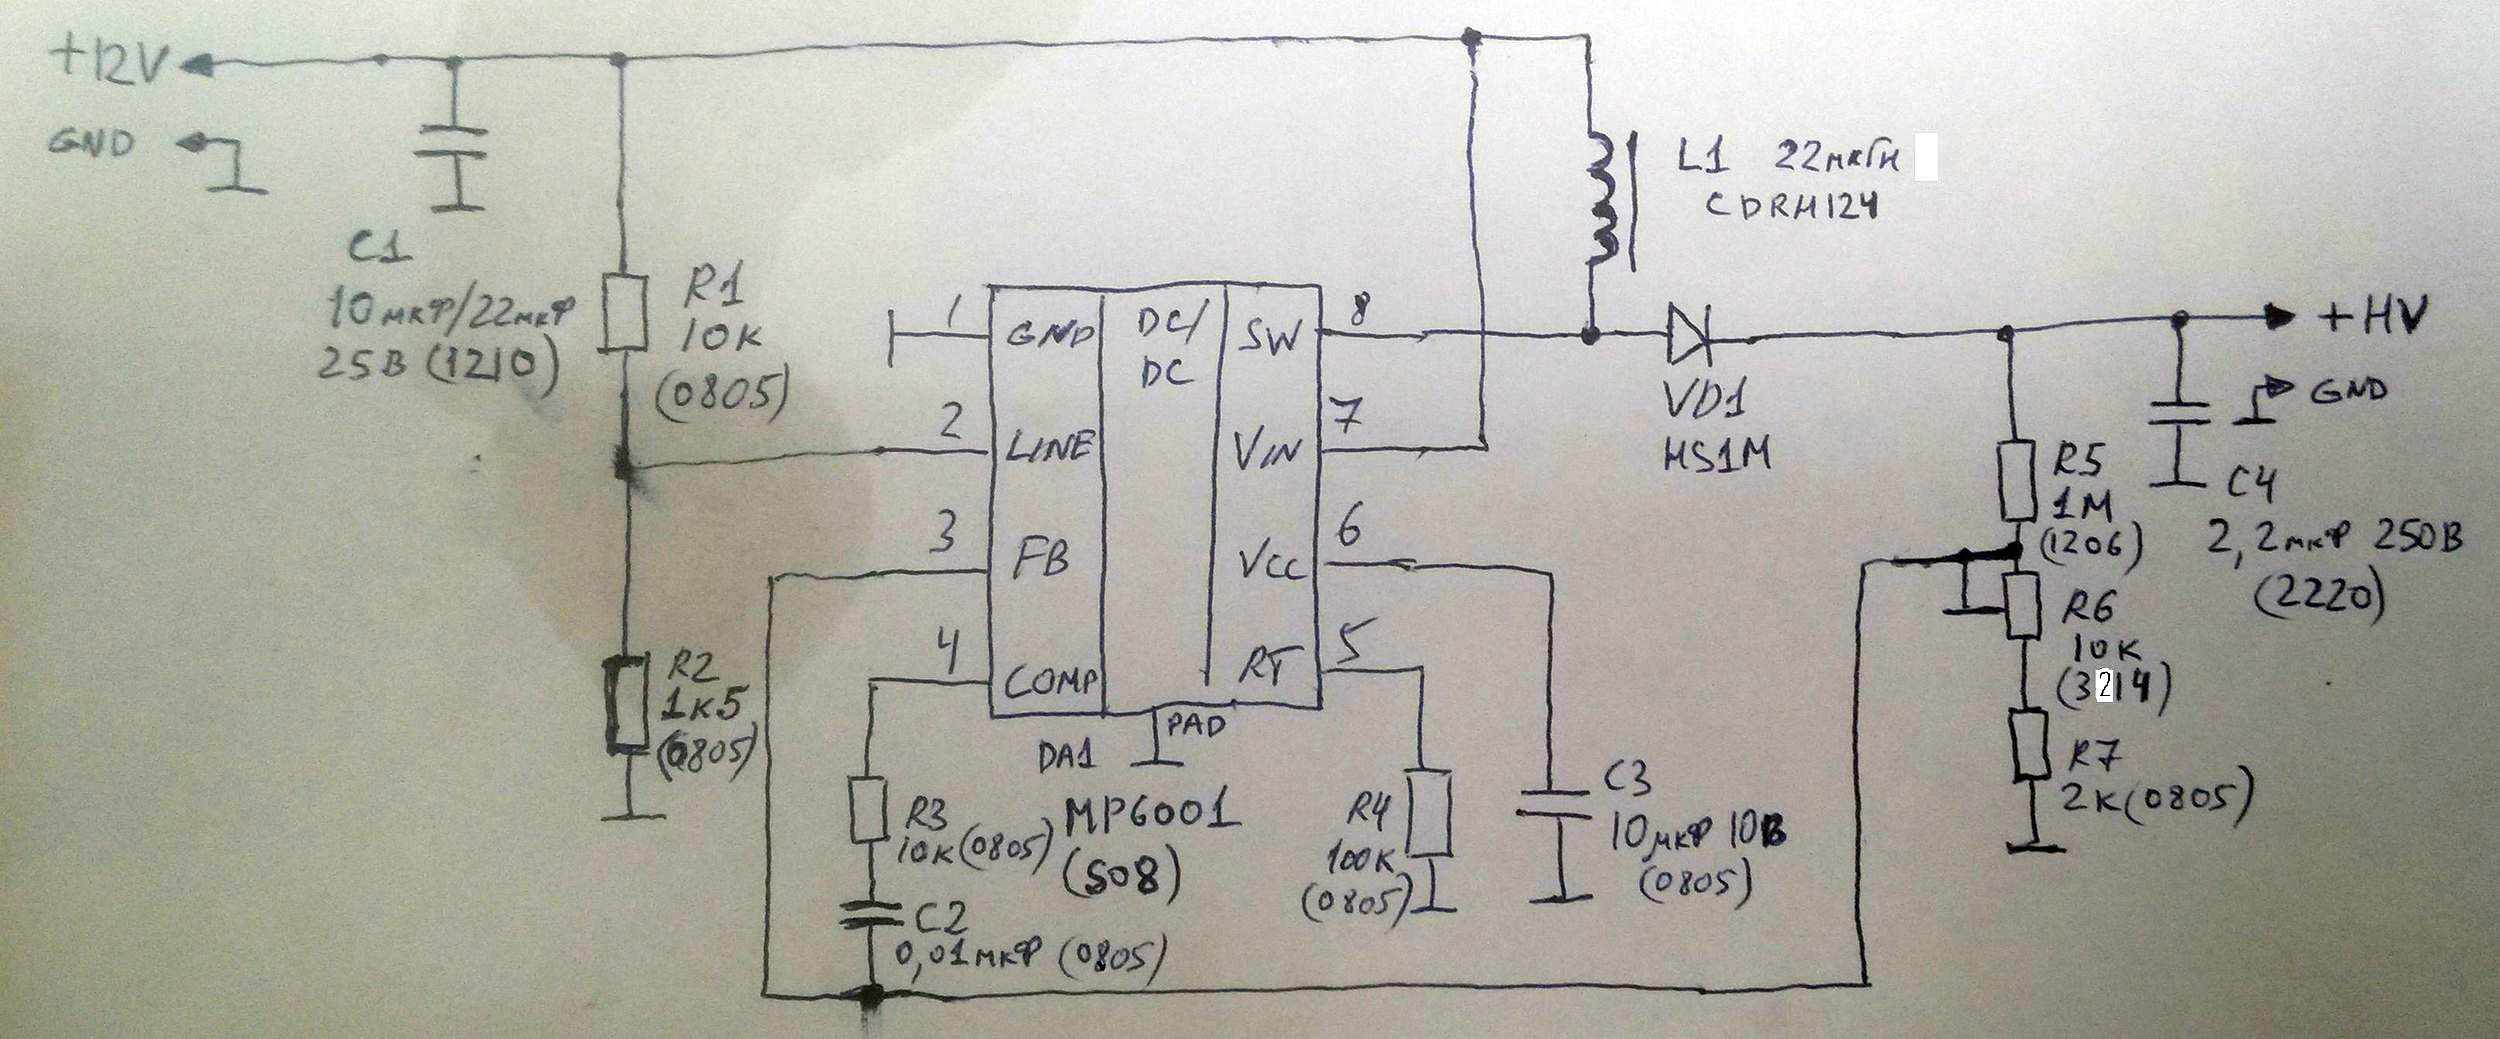 +12V
GND
C1
10мкФ/22мкФ
25В (1210)
R1
10К
(0805)
R2
1К5
(0805)
1
2
3
4
GND
LINE
FB
COMP
DC/
DC
SW
VIN
VCC
RT
8
7
6
5
PAD
DA1
MP6001
(SO8)
R3
10К (0805)
C2
0,01мкФ (0805)
R4
100К
(0805)
C3
10мкФ 10В
(0805)
L1 22мкГн
CDRH124
VD1
HS1M
+HV
GND
R5
1М
(1206)
C4
2,2мкФ 250В
(2220)
R6
10К
(3214)
R7
2К (0805)